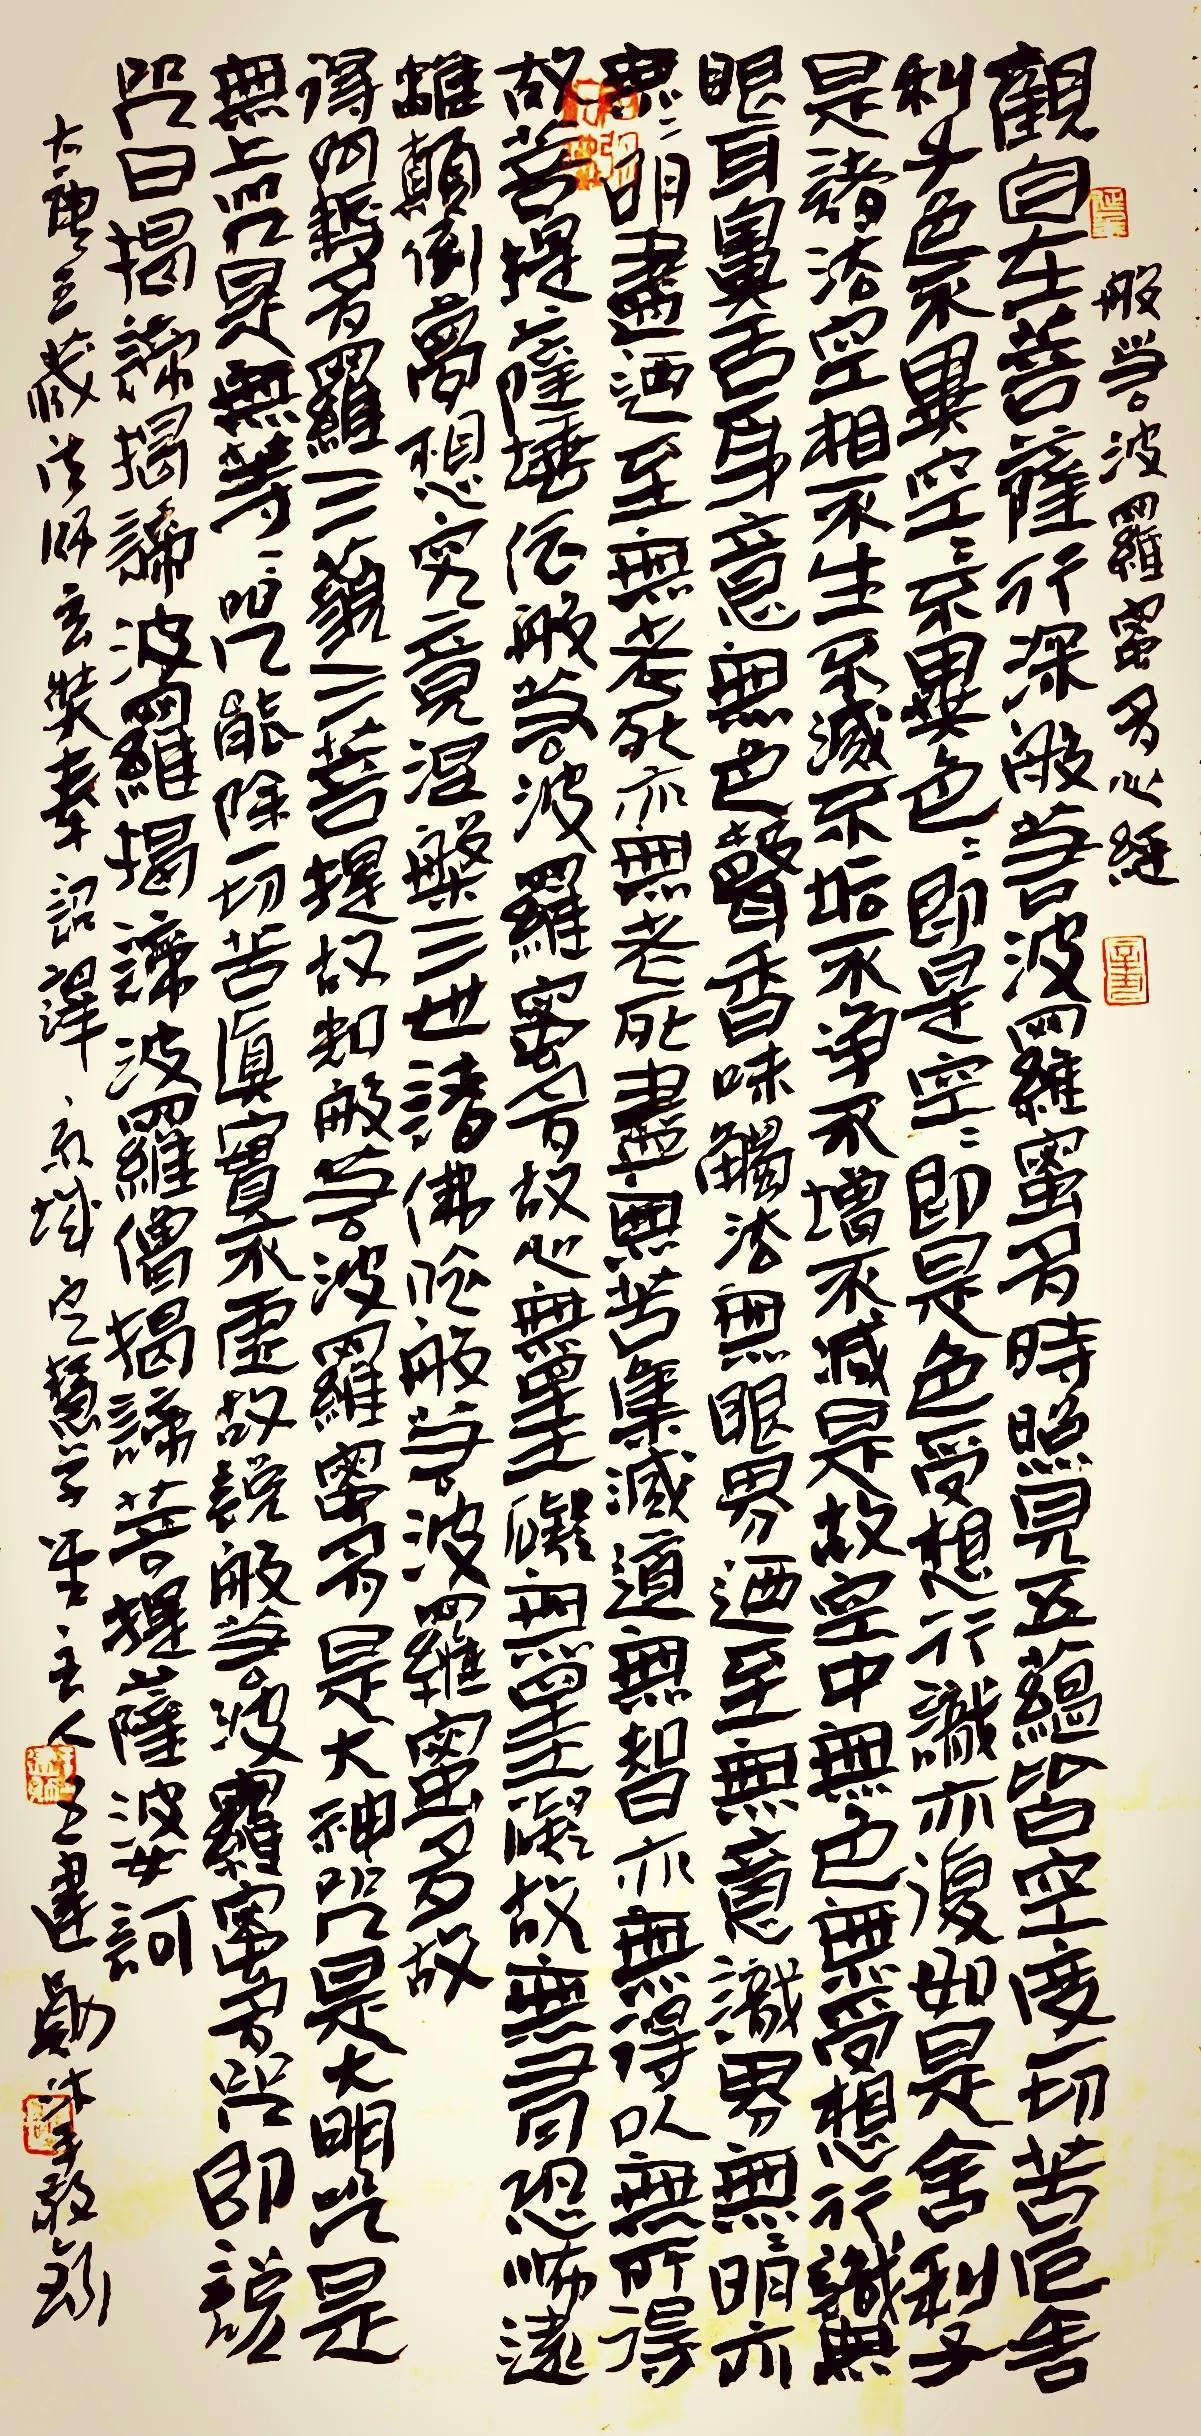 般若波羅蜜多心経
觀自在菩薩行深般若波羅蜜多時照見五蘊皆空度一切苦厄舍
利子色不異空〻不異色〻即是空〻即是色受想行識亦復如是舍利子
是諸法空相不生不滅不垢不淨不增不減是故空中無色無受想行識無
眼耳鼻舌身意無色聲香味觸法無眼界迺至無意識界無〻明亦
無〻明盡迺至無老死亦無老死盡無苦集滅道無智亦無得以無所得
故菩提薩埵依般若波羅蜜多故心無罣礙無罣礙故無有恐怖遠
離顛倒夢想究竟涅槃三世諸佛依般若波羅蜜多故
得阿耨多羅三藐三菩提故知般若波羅蜜多是大神咒是大明咒是
無上咒是無等〻咒能除一切苦真實不虛故說般若波羅蜜多咒即說
咒曰揭諦揭諦波羅揭諦波羅僧揭諦菩提薩婆訶
大唐三藏法師玄奘奉詔譯京城定慧堂主人建勛沐手敬錄